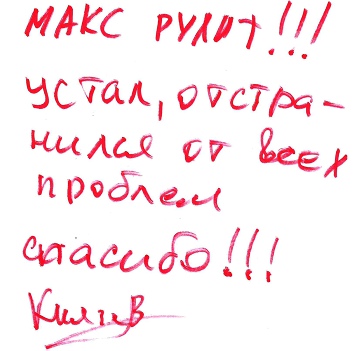 МАКС РУЛИТ!!!
устал, отстра-
нился от всех
проблем
спасибо!!!